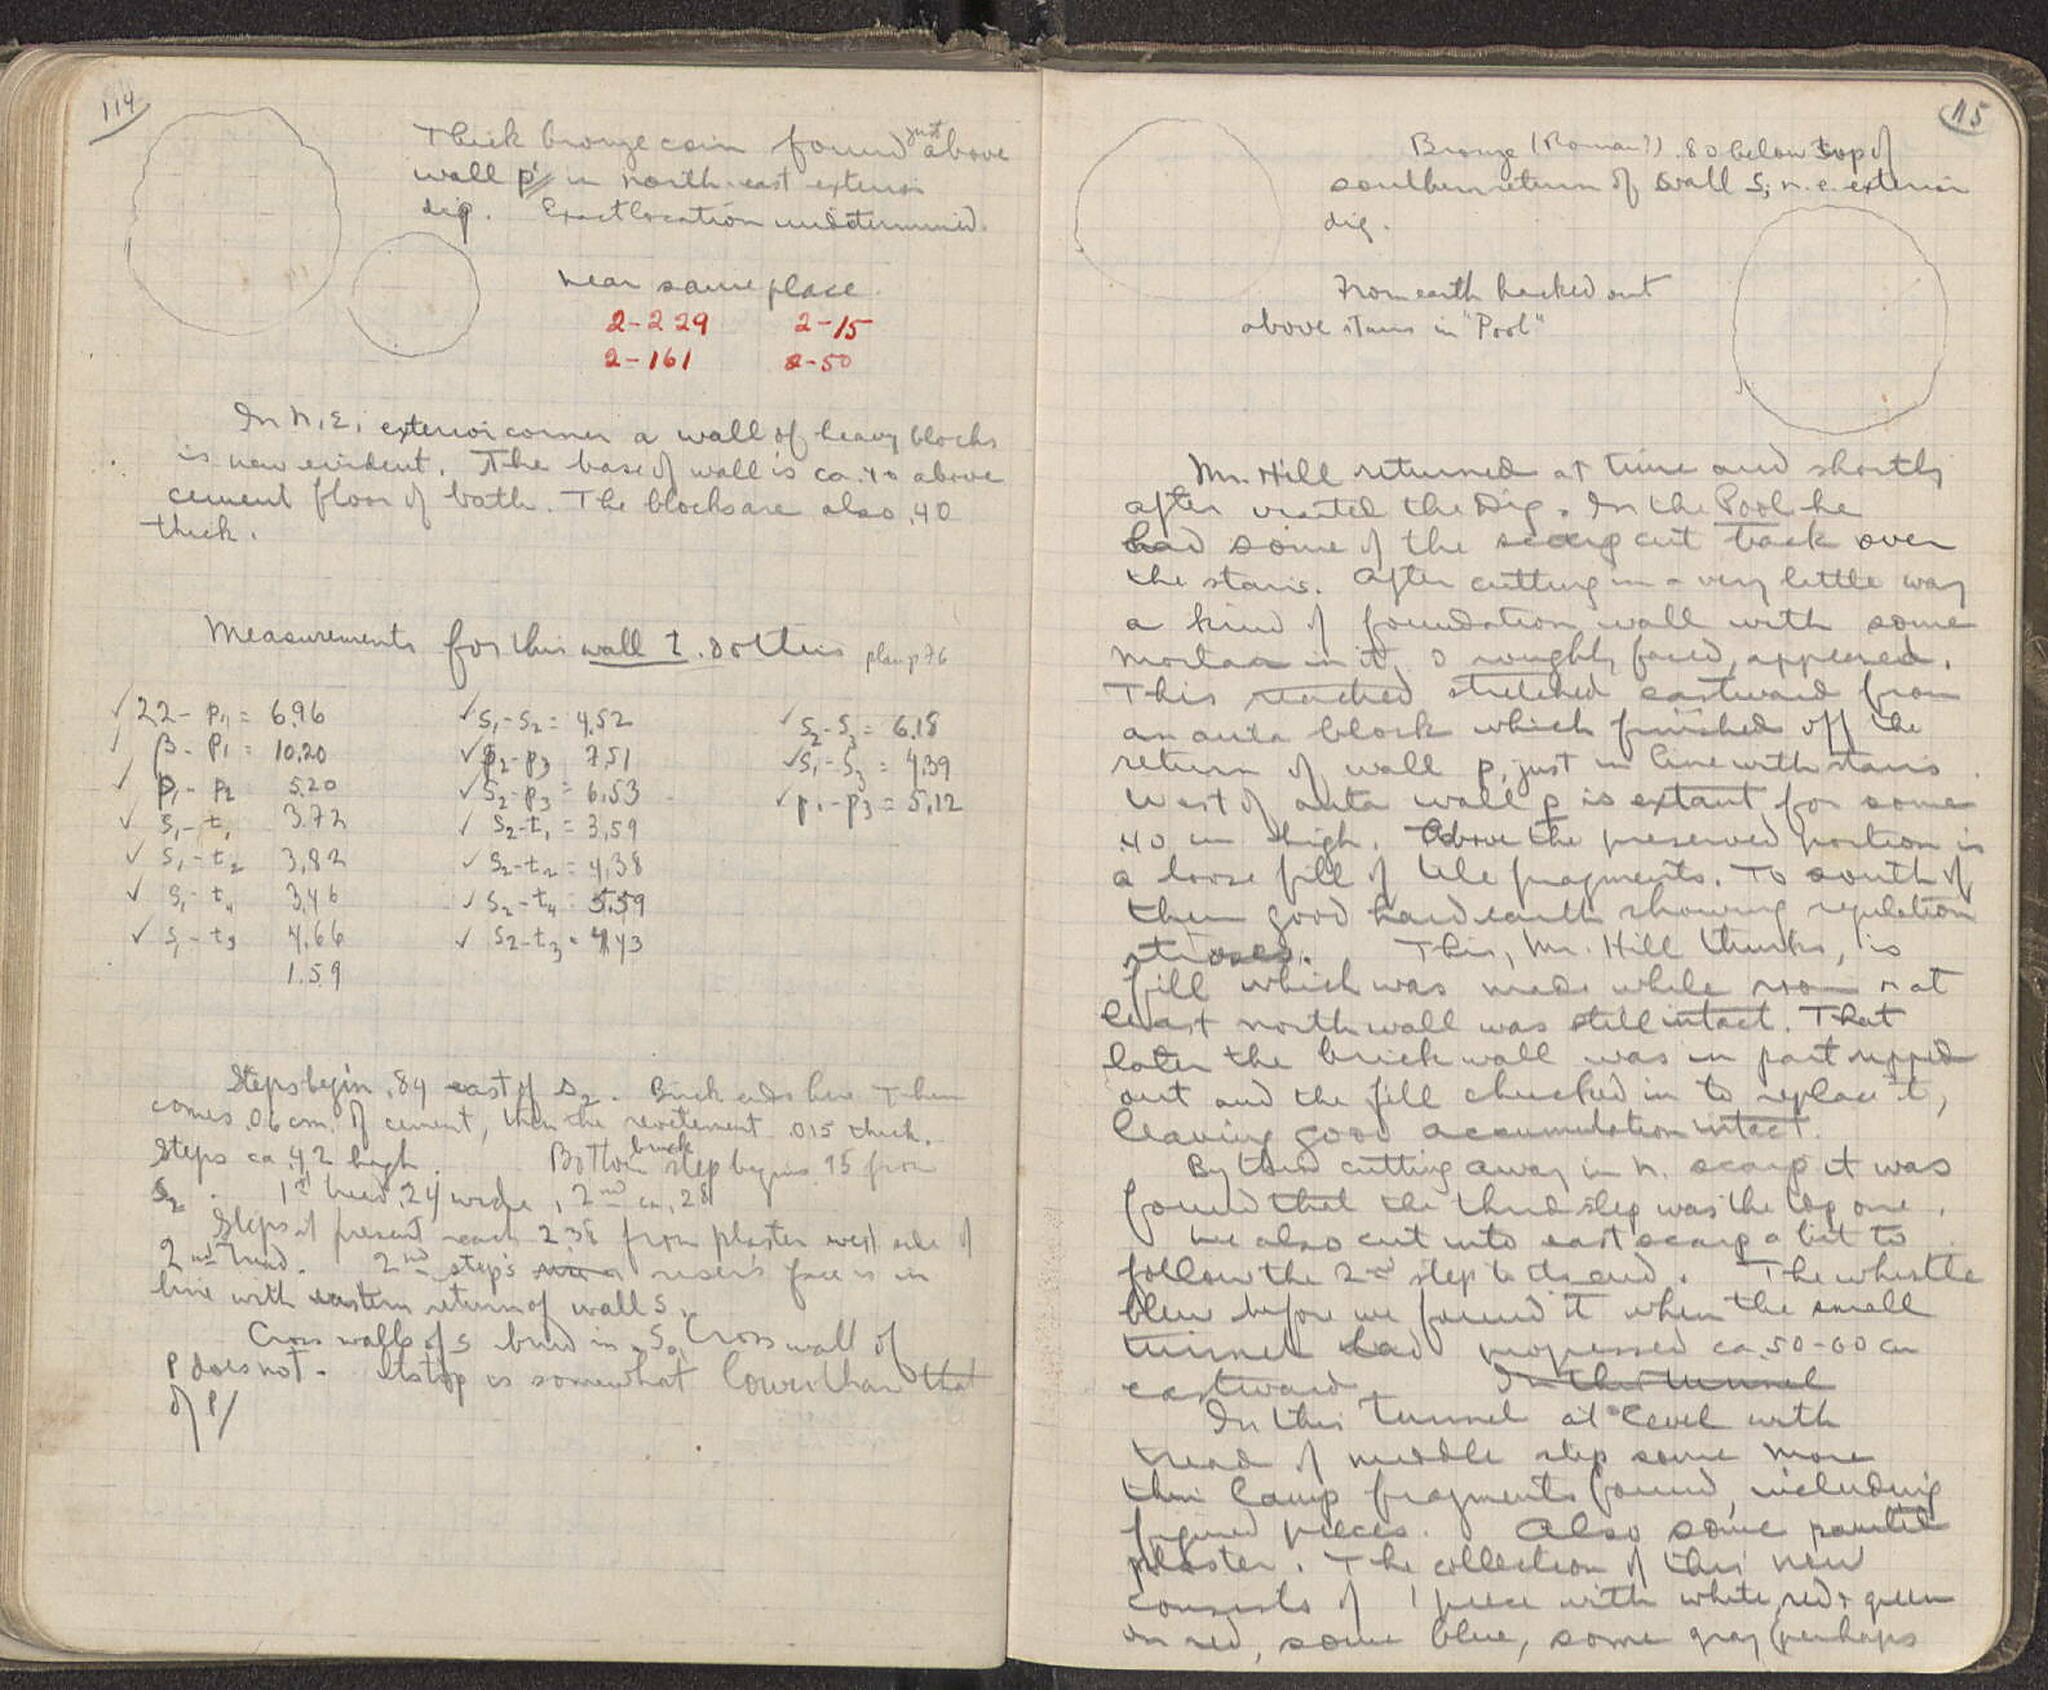 114
Thick bronze coin found just above
wall p' in north-east exterior
dig. Exact location undetermined.
near same place
2-229 2-15
2-161 2-50
In N.E. exterior corner a wall of heavy blocks
is now evident. The base of wall is ca .40 above
cement floor of bath. The blocks are also .40
thick.
Measurements for this wall t. & others plan p 76
✓ 22 - p4 = 6.96
✓ β - p1 = 10.20
✓ p1 - p2 5.20
✓ s1 - t1 3.72
✓ s1 - t2 3.82
✓ s1 - t4 3.46
✓ s1 - t3 4.66
1.59
✓ s1 - s2 = 4.52
✓ p2 - p3 7.51
✓ s2 - p3 = 6.53
✓ s2 - t1 = 3.59
✓ s2 - t2 = 4.38
✓ s2 - t4 = 5.59
✓ s2 - t3 = 4.43
✓ s2 - s3 = 6.18
✓ s1 - s3 = 4.39
✓ p1 - p3 = 5.12
Steps begin .84 east of s2. Brick ends here Then
comes .06 cm. of cement, then the revetement .015 thick.
Steps ca .42 high. Bottom brick step begins .95 from
s2. 1st tread .24 wide, 2nd ca .28
Steps at present reach 2.38 from plaster west side of
2nd tread. 2nd step's riser's face is in
line with eastern return of wall s.
Cross walls of s bond in. So Cross wall of
p does not. Its top is somewhat lower than that
of p/
115
Bronze (Roman?) .80 below top of
southern return of wall s, n.e. exterior
dig.
From earth hacked out
above stairs in "Pool"
Mr. Hill returned at time and shortly
after visited the Dig. In the Pool he
had some of the scarp cut back over
the stairs. After cutting in a very little way
a kind of foundation wall with some
mortar in it, & roughly faced, appeared.
This reached stretched eastward from
an anta block which finished off the
return of wall p, just in line with stairs.
West of anta wall p is extant for some
.40 cm high. Above the preserved portion is
a loose fill of tile fragments. To south of
them good hard earth showing regulation
This, Mr. Hill thinks, is
fill which was made while room or at
least north wall was still intact. That
later the brick wall was in part ripped
out and the fill chucked in to replace it,
leaving good accumulation intact.
By then cutting away in N. scarp it was
found that the third step was the top one.
We also cut into east scarp a bit to
follow the 2nd step to its end. The whistle
blew before we found it when the small
tunnel had progressed ca .50-60 cm
eastward. In this tunnel
In this tunnel at level with
tread of middle step some more
thin lamp fragments found, including
figured pieces. Also some painted
plaster. The collection of this new
consists of 1 piece with white, red & green
on red, some blue, some gray (perhaps